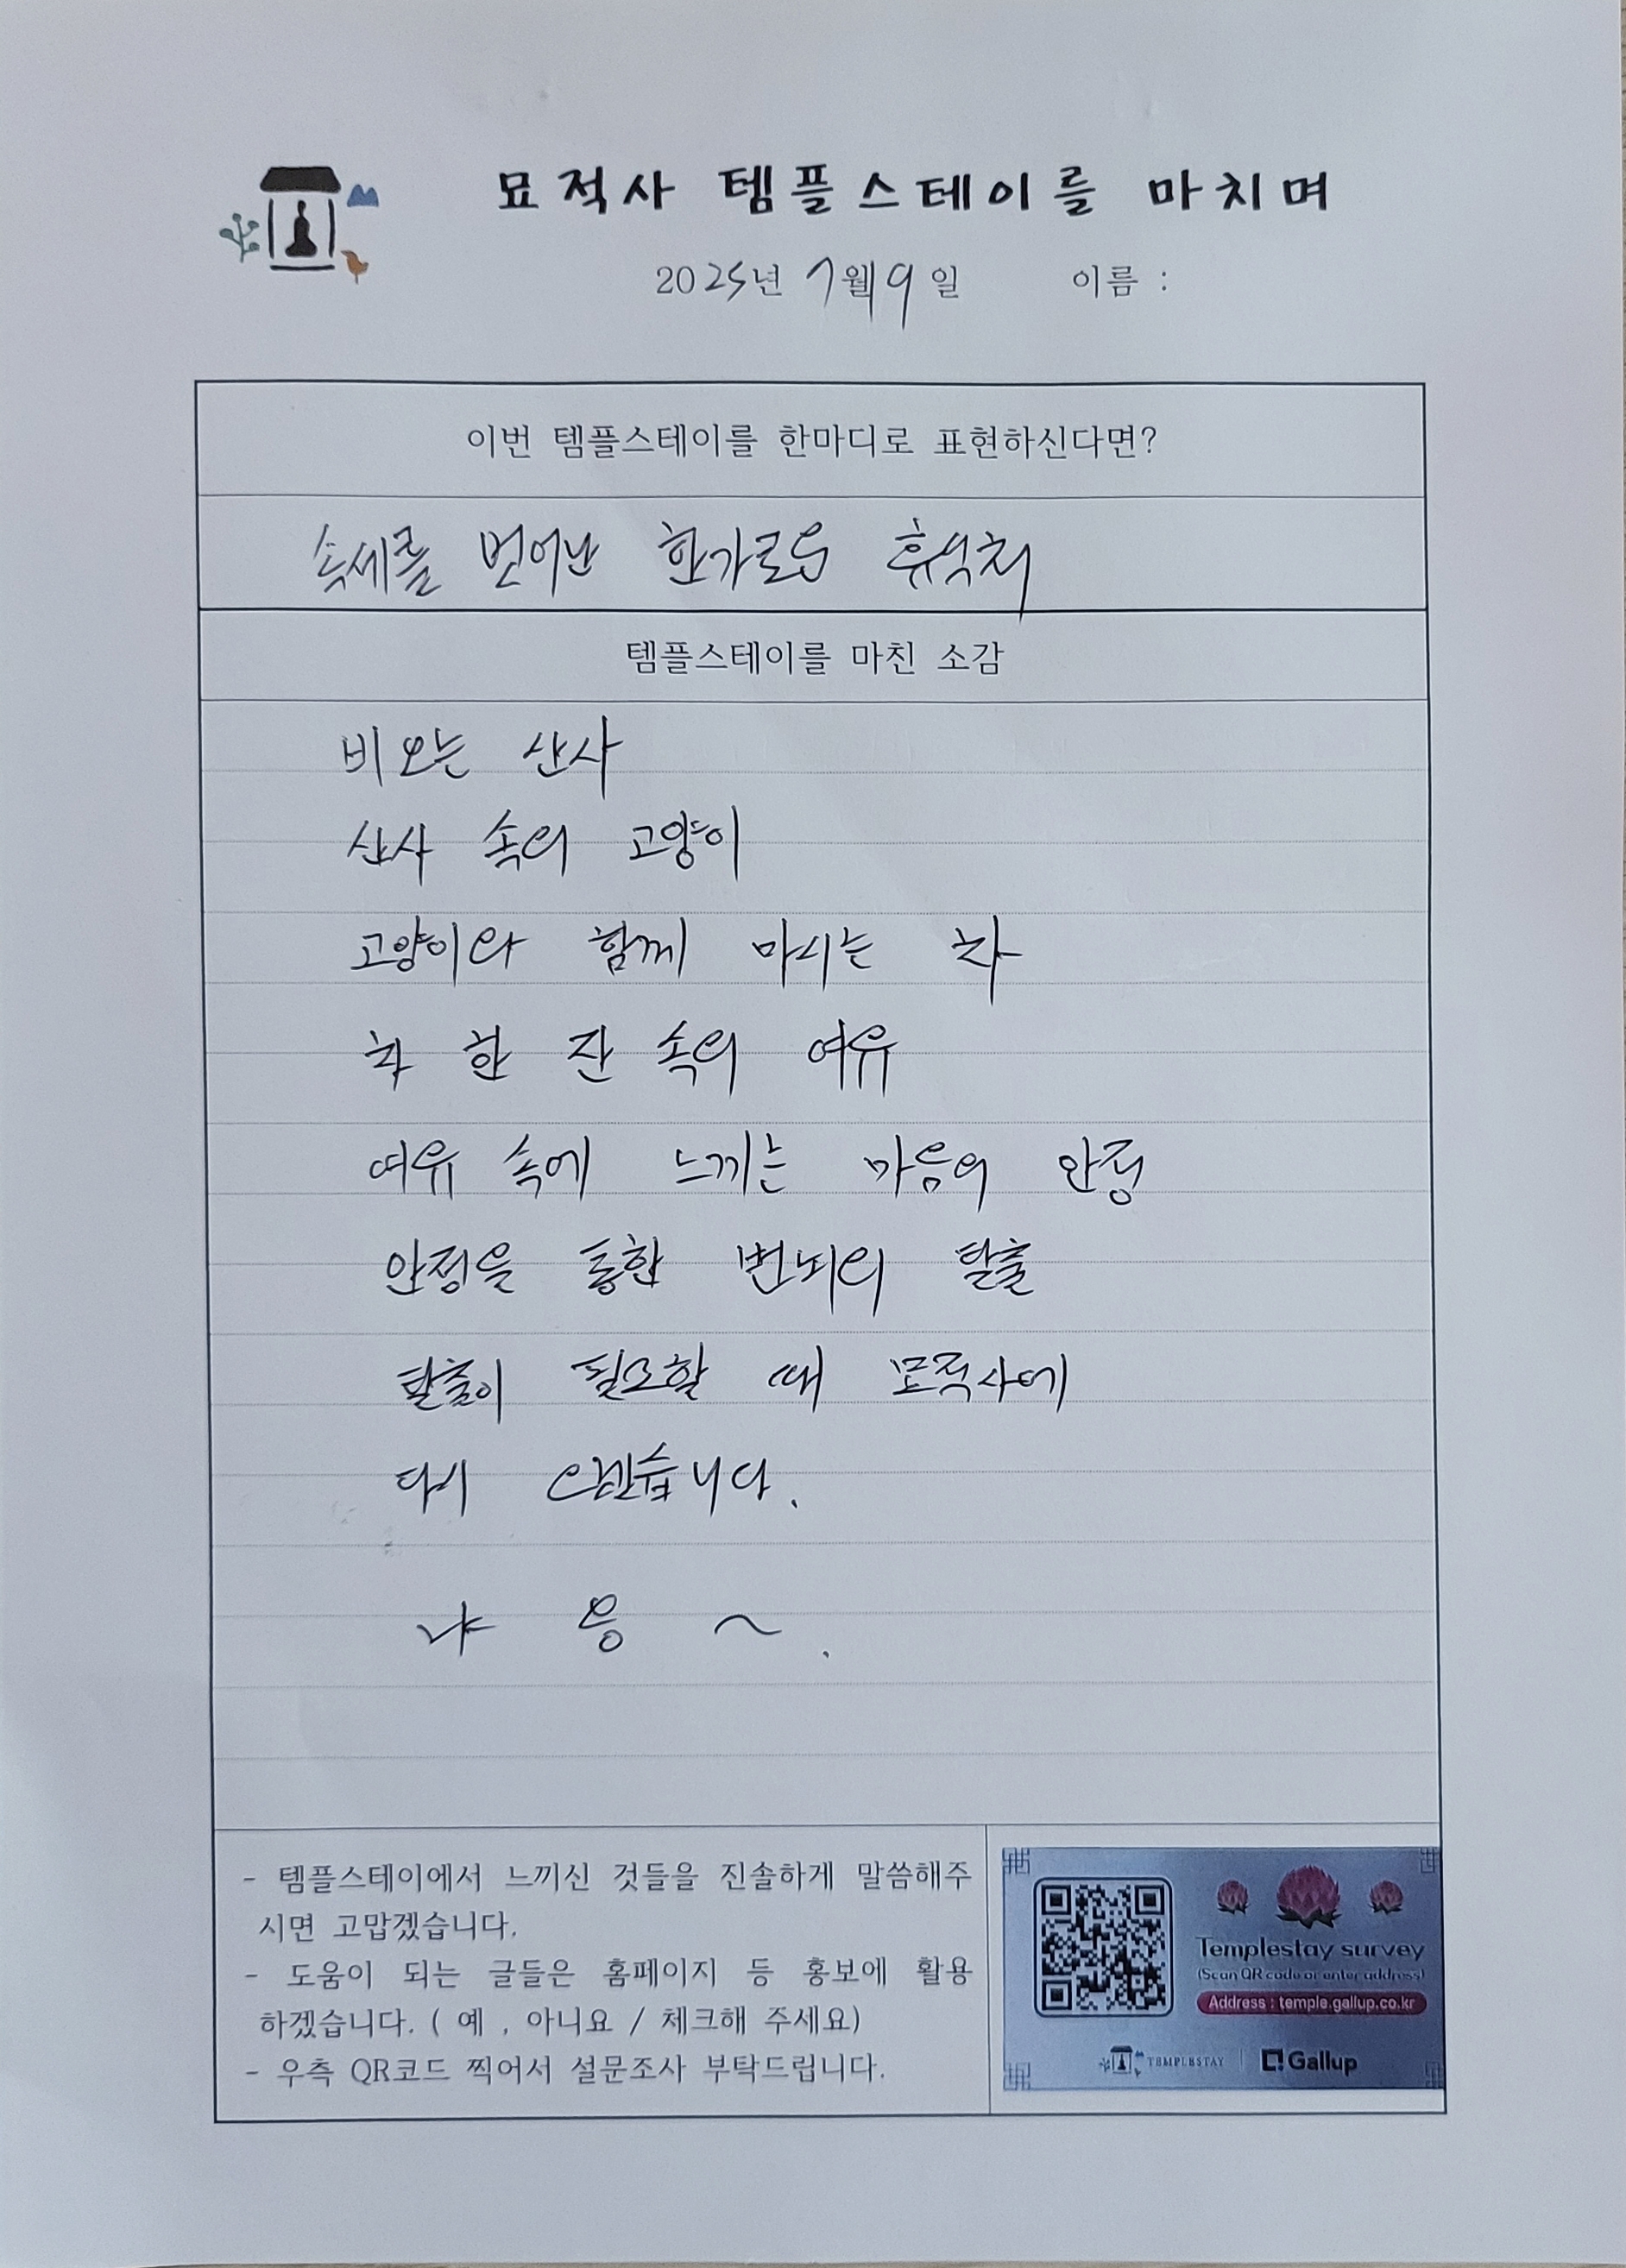 묘적사 템플스테이를 마치며
2025년 7월 9일 이름 :
이번 템플스테이를 한마디로 표현하신다면?
속세를 벗어난 한가로운 휴식처
템플스테이를 마친 소감
비오는 산사
산사 속의 고양이
고양이와 함께 마시는 차
차 한 잔 속의 여유
여유 속에 느끼는 마음의 안정
안정을 통한 번뇌의 탈출
탈출이 필요할 때 묘적사에
다시 오겠습니다.
냐 옹 ~ .
- 템플스테이에서 느끼신 것들을 진솔하게 말씀해주
시면 고맙겠습니다.
- 도움이 되는 글들은 홈페이지 등 홍보에 활용
하겠습니다. ( 예 , 아니요 / 체크해 주세요)
- 우측 QR코드 찍어서 설문조사 부탁드립니다.
Templestay survey
(Scan QR code or enter address)
Address : temple.gallup.co.kr
TEMPLESTAY
Gallup